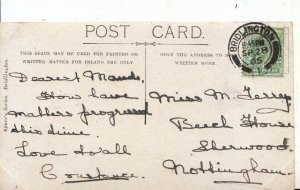 POST CARD.
THIS SPACE MAY BE USED FOR PRINTED OR
WRITTEN MATTER FOR INLAND USE ONLY.
ONLY THE ADDRESS TO BE
WRITTEN HERE.
BRIDLINGTON
05
Dearest Maude,
How have
matters progressed
this time
Love to all
Constance.
Miss M. Terrey
Beech House
Sherwood
Nottingham.
Bridlington.